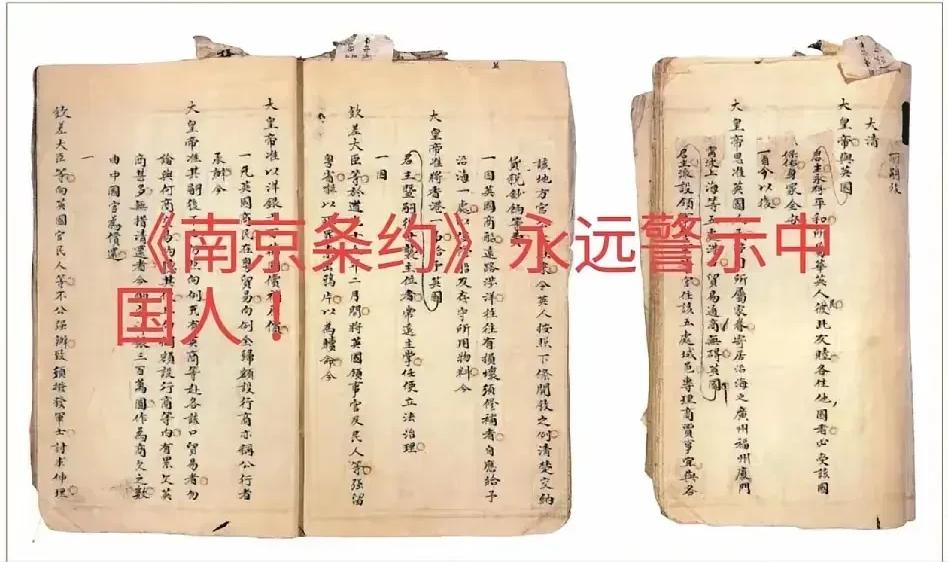 《南京条约》永远警示中
国人！
大清
大皇帝與英國
君主永存平和所屬華英人彼此友睦各住他國者必受該國
保佑身家全安
一自今以後
大皇帝恩准英國人民所屬家眷寄居沿海之廣州福州廈門
寧波上海等五處港貿易通商無礙英國
君主派設領事官住該五處城邑專理商賈事宜與各
該地方官令英人按照下條開敘之例清楚交納
貨稅鈔餉等費
一因英國商船遠路涉洋往往有損壞須修補者自應給予
沿海一處以便修船及存守所用物料今
大皇帝准將香港一島給予英國
君主暨嗣後世襲主位者常遠主掌任便立法治理
一因
欽差大臣等於道年二月間將英國領事官及民人等強留
粵省嚇以死罪索出鴉片以為贖命今
大皇帝准以洋銀償補原價
一凡英國商民在粵貿易向例全歸額設行商亦稱公行者
承辦今
大皇帝准其嗣後不必照向例凡有英商等赴各該口貿易者勿
論與何商交易均聽其便且向例額設行商等內有累欠英
商甚多無措清還者今洋銀三百萬圓作為商欠之數
由中國官為償還
一
欽差大臣等向英國官民人等不公強辦致須撥發軍士討求伸理